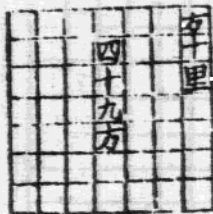 方十里
四十九方